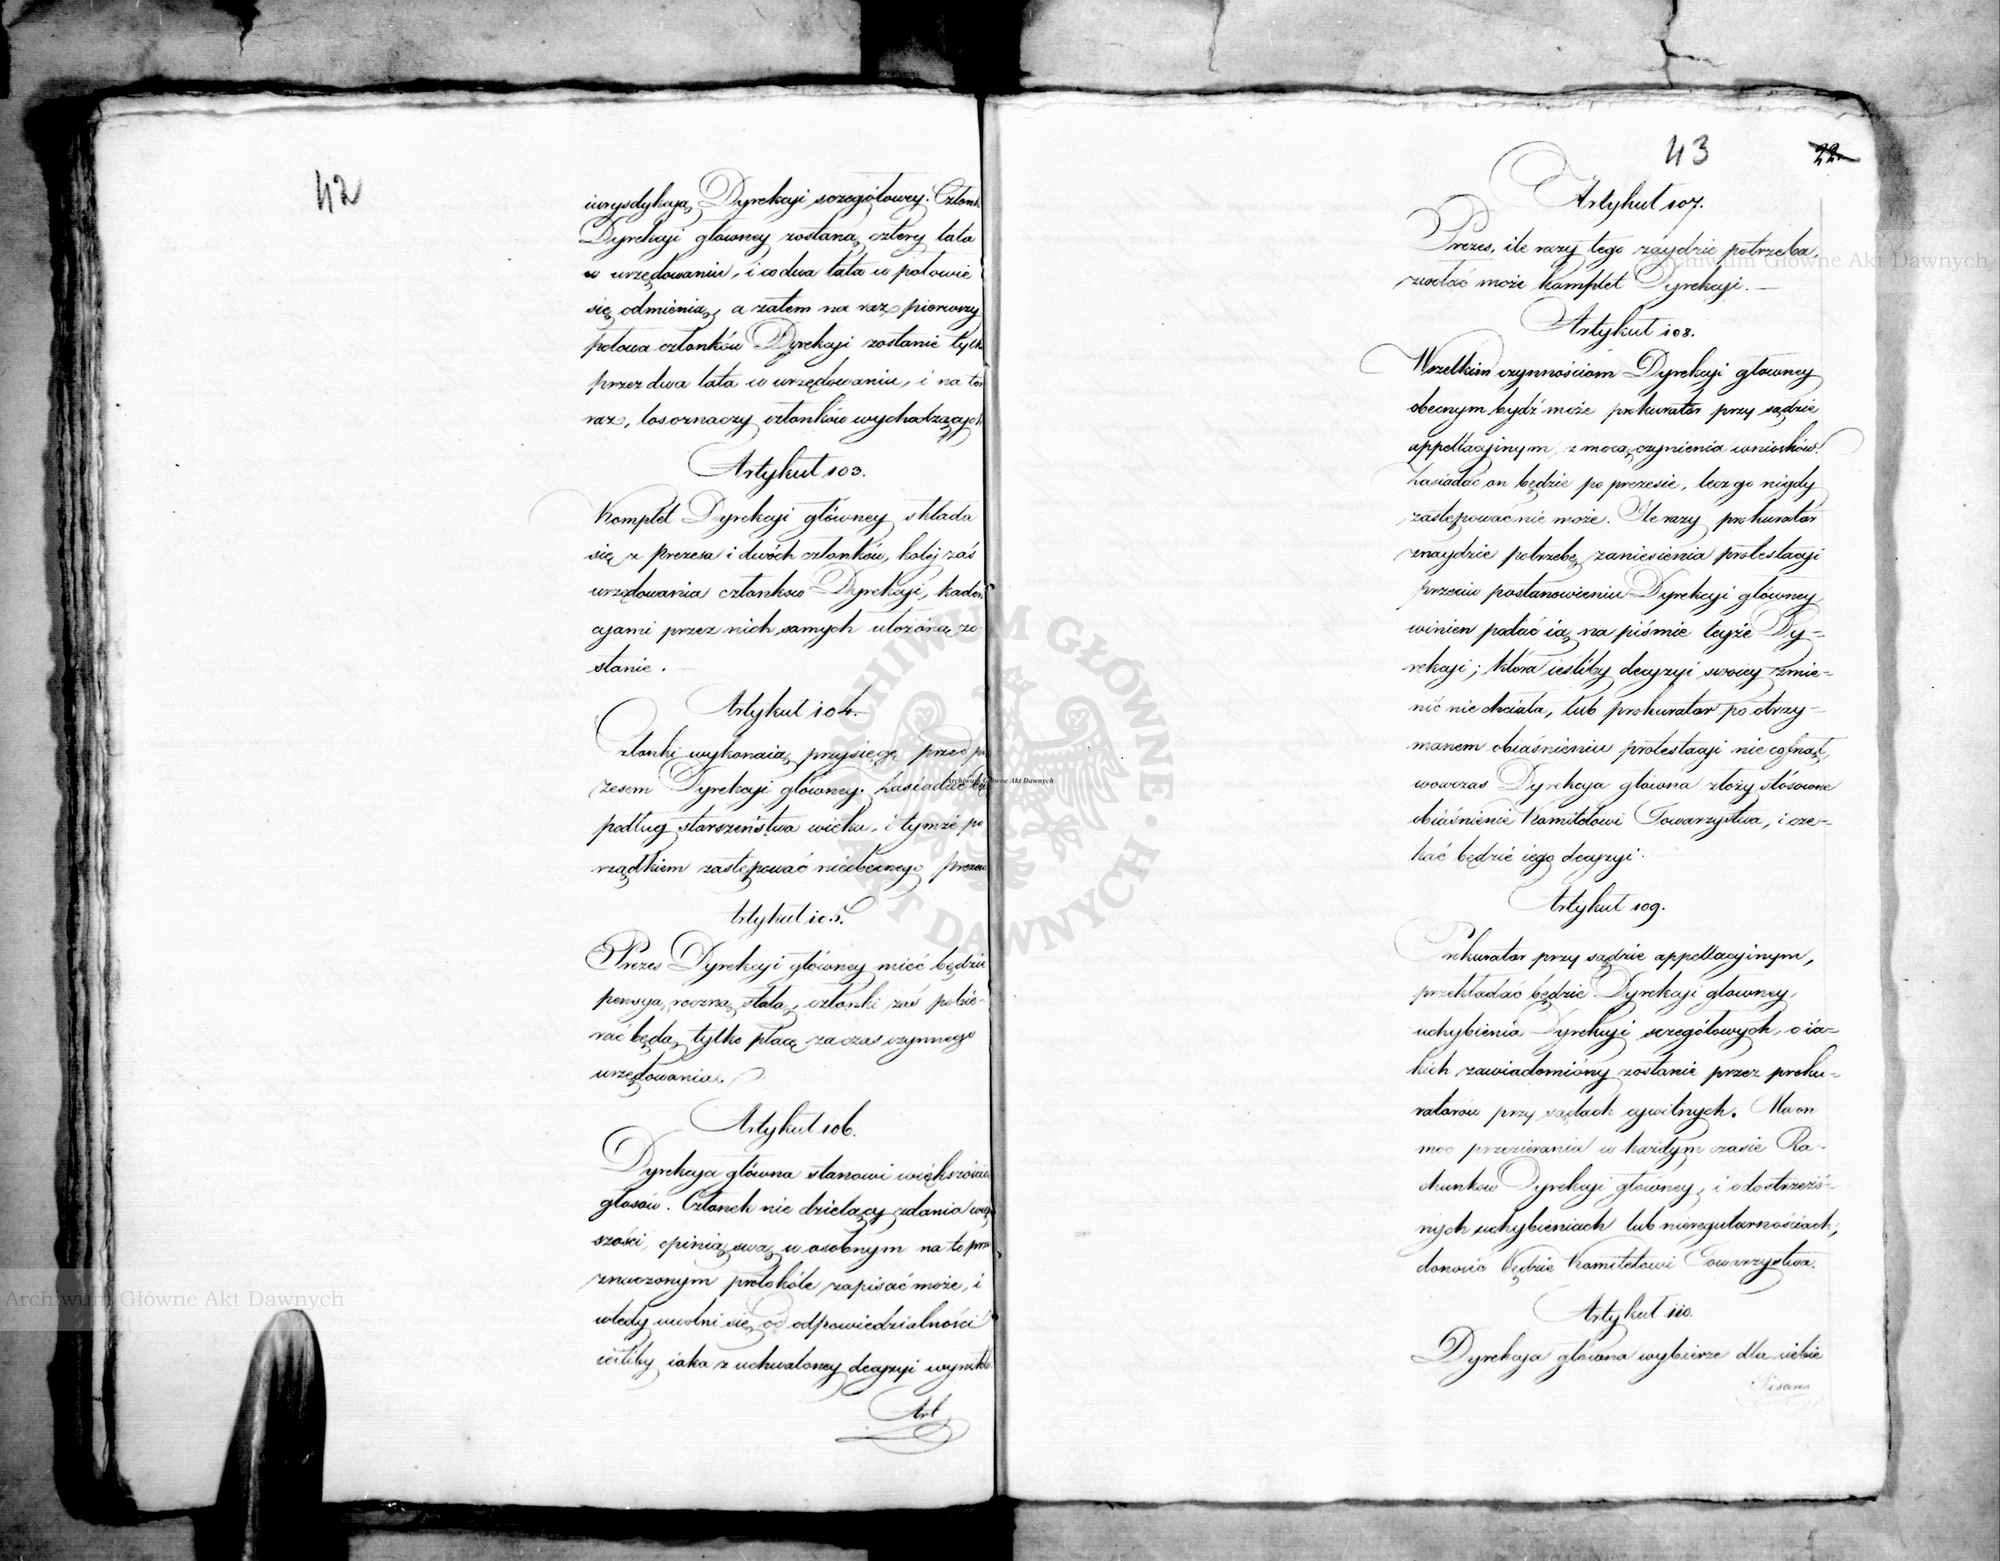 42
iurysdykcyą Dyrekcyi sczegółowey. Członk
Dyrekcyi główney zostaną cztery lata
w urzędowaniu, i co dwa lata w połowie
się odmienią, a zatem na raz pierwszy
połowa członków Dyrekcyi zostanie tylk
przez dwa lata w urzędowaniu, i na ten
raz, los oznaczy członków wychodzących
Artykuł 103.
Komplet Dyrekcyi główney składa
się z prezesa i dwóch członków, koley zaś
urzędowania członków Dyrekcyi, kaden
cyami przez nich samych ułożoną zo
stanie.
Artykuł 104.
Członki wykonaią przysięgę przed pre
zesem Dyrekcyi główney. Zasiadać bę
podług starszeństwa wieku, i tymże po
rządkiem zastępować nieobecnego prezesa
Artykuł 105.
Prezes Dyrekcyi główney mieć będzie
pensyą roczną stałą, członki zaś pobie-
rać będą tylko płacę za czas czynnego
urzędowania.
Artykuł 106.
Dyrekcya główna stanowi większością
głosów. Członek nie dzielący zdania więk
szości, opinią swą w osobnym na to prze
znaczonym protokóle zapisać może, i
wtedy uwolni się od odpowiedzialności
ieśliby iaka z uchwaloney decyzyi wynikła
Art.
43
22
Artykuł 107.
Prezes, ile razy tego zaydzie potrzeba,
zwołać może komplet Dyrekcyi. —
Artykuł 108.
Wszelkim czynnościom Dyrekcyi główney
obecnym bydź może prokurator przy sądzie
appellacyinym z mocą czynienia wniosków.
Zasiadać on będzie po prezesie, lecz go nigdy
zastępować nie może. Ile razy prokurator
znaydzie potrzebę zaniesienia protestacyi
przeciw postanowieniu Dyrekcyi główney
winien podać ią na piśmie teyże Dy-
rekcyi; która ieśliby decyzyi swoiey zmie-
nić nie chciała, lub prokurator po otrzy-
manem obiaśnieniu protestacyi nie cofnął,
wówczas Dyrekcya główna złoży stósowne
obiaśnienie Komitetowi Towarzystwa, i cze-
kać będzie iego decyzyi.
Artykuł 109.
Prokurator przy sądzie appellacyinym,
przekładać będzie Dyrekcyi główney,
uchybienia Dyrekcyi sczegółowych, o ia-
kich zawiadomiony zostanie przez proku-
ratorów przy sądach cywilnych. Ma on
moc przezierania w każdym czasie Ra-
chunków Dyrekcyi główney, i o dostrzeżo-
nych uchybieniach lub nieregularnościach,
donosić będzie Komitetowi Towarzystwa.
Artykuł 110.
Dyrekcya główna wybierze dla siebie
Pisarza
Archiwum Główne Akt Dawnych
Archiwum Główne Akt Dawnych
Archiwum Główne Akt Dawnych
ARCHIWUM GŁÓWNE AKT DAWNYCH